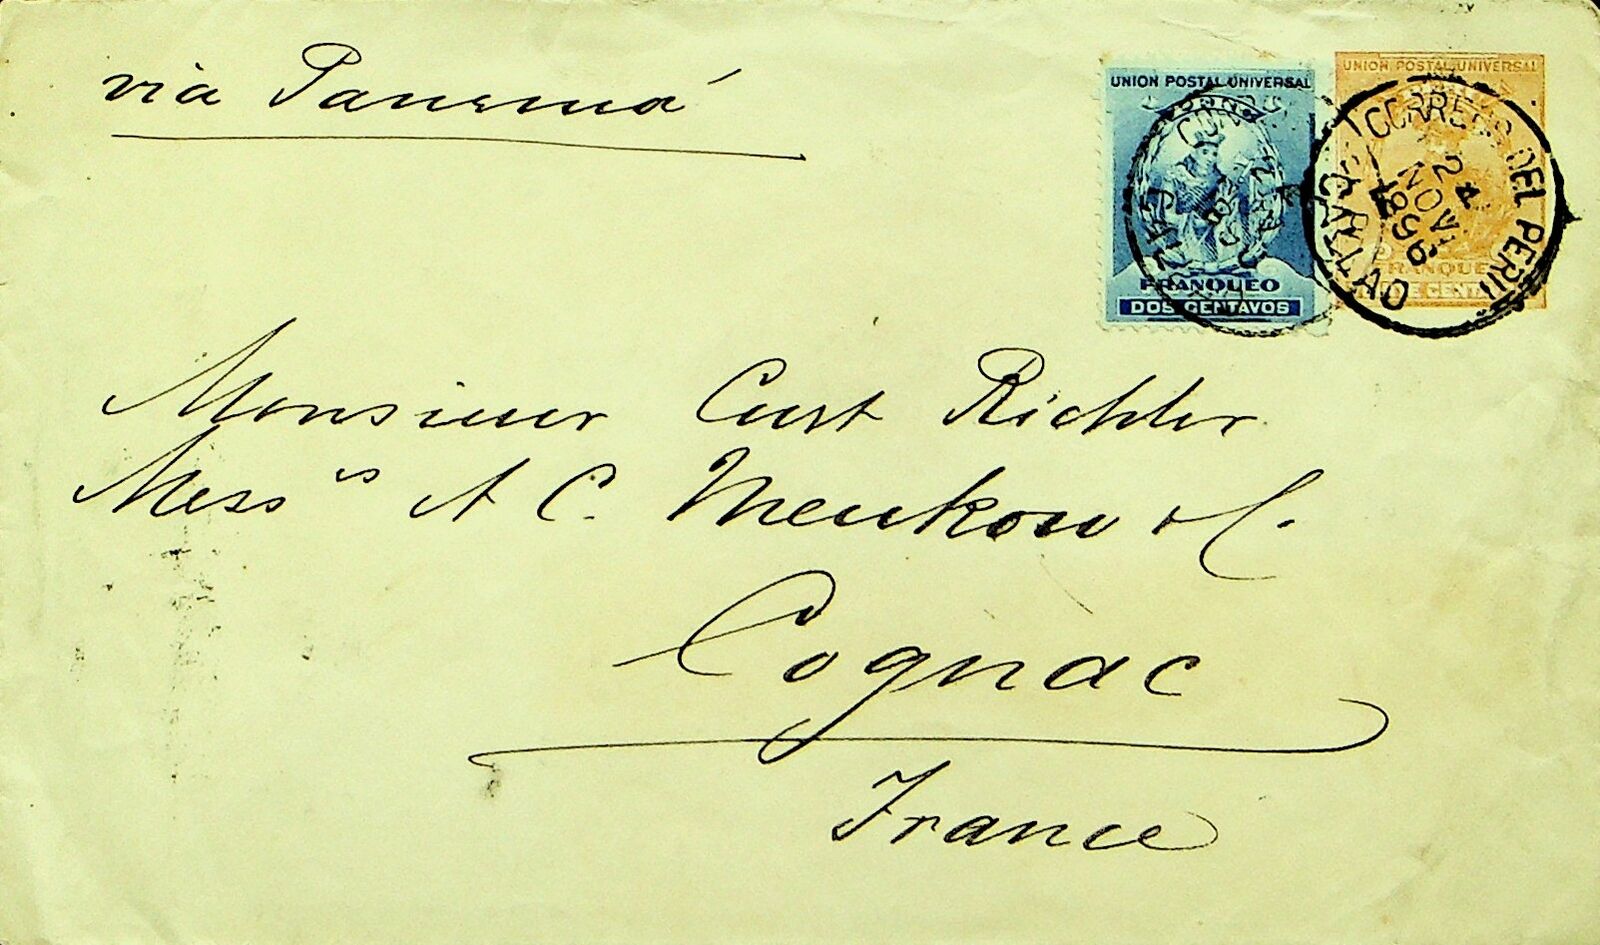 via Panamá
UNION POSTAL UNIVERSAL
FRANQUEO
DOS CENTAVOS
UNION POSTAL UNIVERSAL
FRANQUEO
CORREOS DEL PERU
CALLAO
Monsieur Curt Richter
Messrs A C. Meukow & C.
Cognac
France